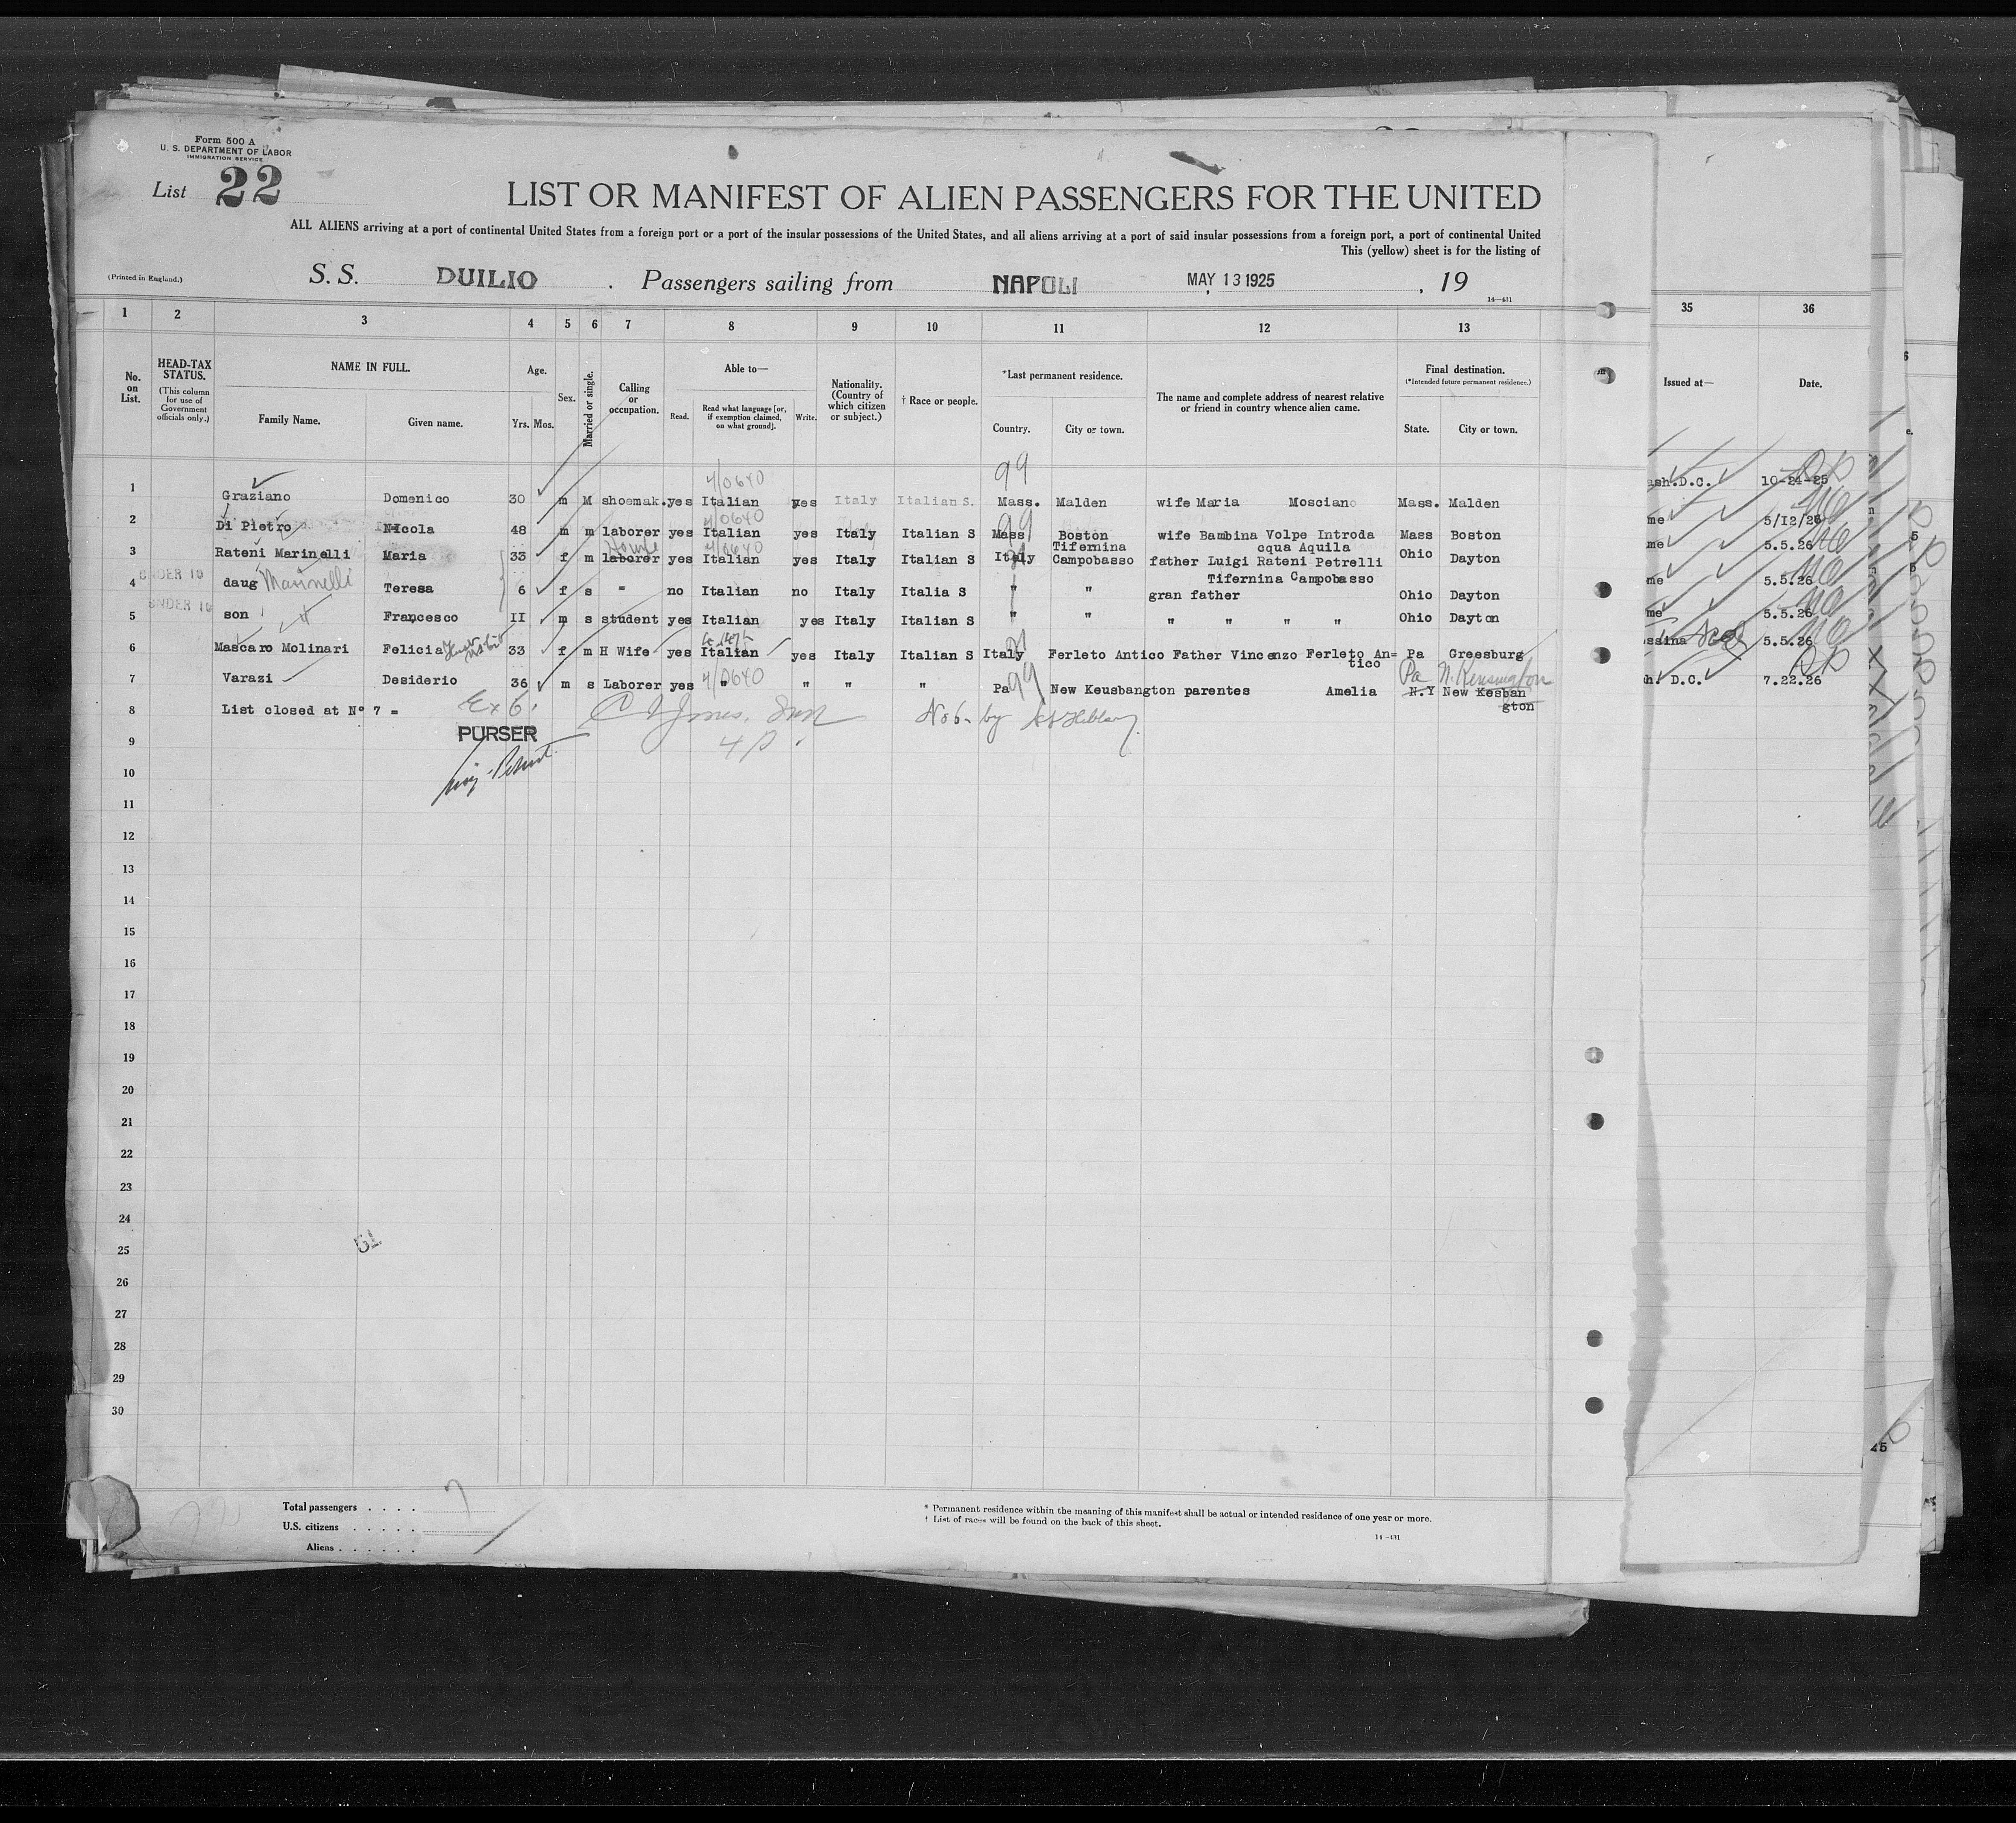 Form 500 A
U. S. DEPARTMENT OF LABOR
IMMIGRATION SERVICE
List 22
LIST OR MANIFEST OF ALIEN PASSENGERS FOR THE UNITED
ALL ALIENS arriving at a port of continental United States from a foreign port or a port of the insular possessions of the United States, and all aliens arriving at a port of said insular possessions from a foreign port, a port of continental United
This (yellow) sheet is for the listing of
(Printed in England.) S. S. DUILIO . Passengers sailing from NAPOLI MAY 13 1925 , 19
14—431
1 2 3 4 5 6 7 8 9 10 11 12 13 35 36
No. on List.
HEAD-TAX STATUS.
(This column for use of Government officials only.)
NAME IN FULL.
Family Name. Given name.
Age.
Yrs. Mos.
Sex.
Married or single.
Calling or occupation.
Able to—
Read. Read what language [or, if exemption claimed, on what ground]. Write.
Nationality. (Country of which citizen or subject.)
† Race or people.
*Last permanent residence.
Country. City or town.
The name and complete address of nearest relative or friend in country whence alien came.
Final destination.
(*Intended future permanent residence.)
State. City or town.
Issued at— Date.
4/0640 99
1 Graziano Domenico 30 m M shoemak. yes Italian yes Italy Italian S. Mass. Malden wife Maria Mosciano Mass. Malden ash.D.C. 10-24-25
4/0640 99
2 Di Pietro Nicola 48 m m laborer yes Italian yes Italy Italian S Mass Boston wife Bambina Volpe Introda Mass Boston me 5/12/26
cqua Aquila
Tifernina
4/0640
3 Rateni Marinelli Maria 33 f m laborer yes Italian yes Italy Italian S Italy Campobasso father Luigi Rateni Petrelli Ohio Dayton me 5.5.26
Tifernina Campobasso
UNDER 16
4 daug Marinelli Teresa 6 f s " no Italian no Italy Italia S " " gran father Ohio Dayton me 5.5.26
UNDER 16
5 son " Francesco II m s student yes Italian yes Italy Italian S " " " " " " Ohio Dayton me 5.5.26
6 Mascaro Molinari Felicia 33 f m H Wife yes Italian yes Italy Italian S Italy Ferleto Antico Father Vincenzo Ferleto An= Pa Greesburg ssina 5.5.26
tico
4/0640 99 Pa N. Kensington
7 Varazi Desiderio 36 m s Laborer yes " " " " Pa New Keusbangton parentes Amelia N.Y New Kesban h. D.C. 7.22.26
gton
8 List closed at N° 7 = Ex 6. No 6- by
9 PURSER
10
11
12
13
14
15
16
17
18
19
20
21
22
23
24
25
26
27
28
29
30
Total passengers . . . . 7
U.S. citizens . . . . .
Aliens . . . . . .
* Permanent residence within the meaning of this manifest shall be actual or intended residence of one year or more.
† List of races will be found on the back of this sheet.
14—431